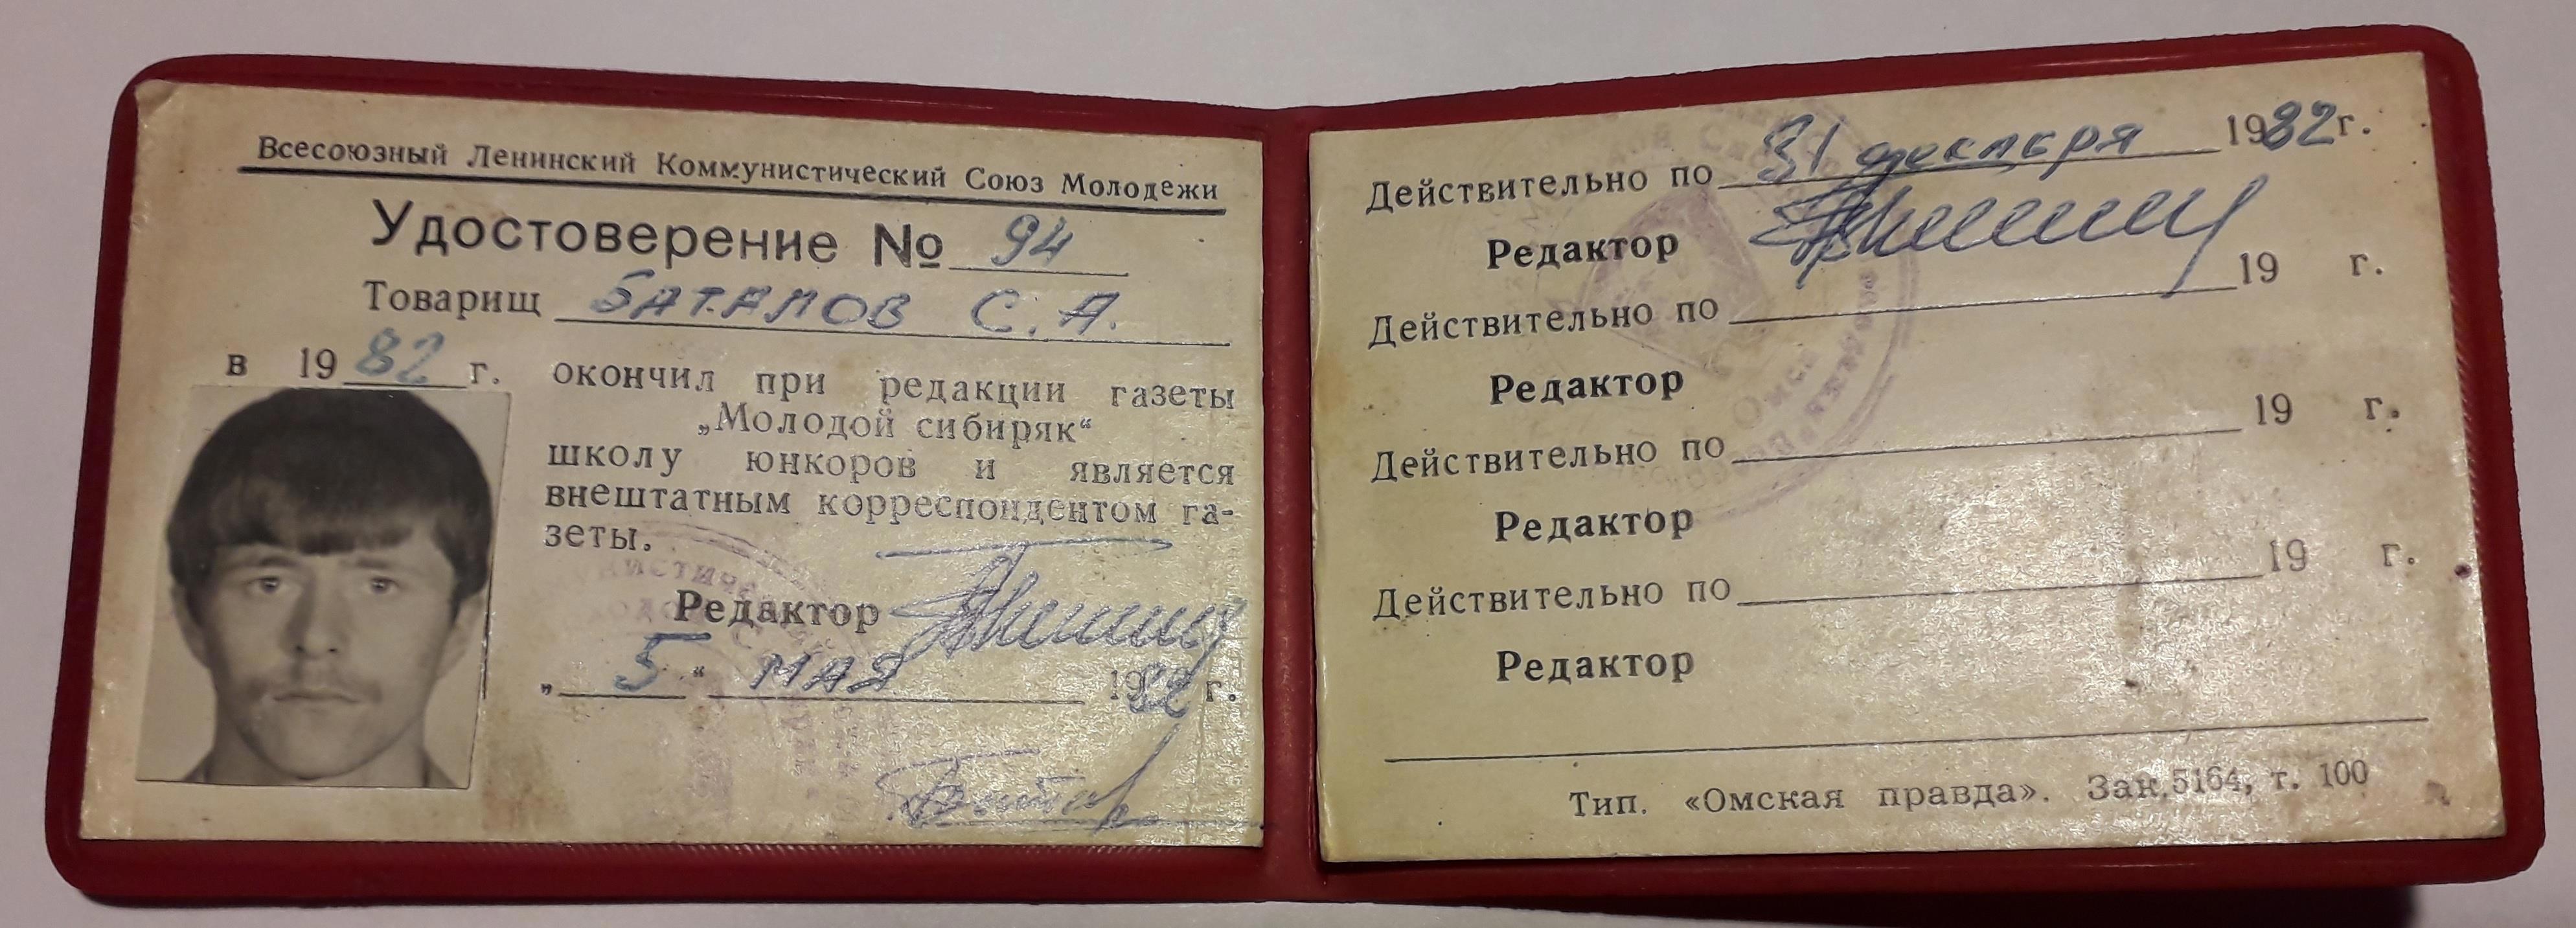 Всесоюзный Ленинский Коммунистический Союз Молодежи
Удостоверение № 94
Товарищ БАТАЛОВ С. А.
в 1982 г. окончил при редакции газеты
„Молодой сибиряк“
школу юнкоров и является
внештатным корреспондентом га-
зеты.
Редактор
„5“ МАЯ 1982 г.
Действительно по 31 декабря 1982 г.
Редактор
Действительно по 19 г.
Редактор
Действительно по 19 г.
Редактор
Действительно по 19 г.
Редактор
Тип. «Омская правда». Зак. 5164, т. 100